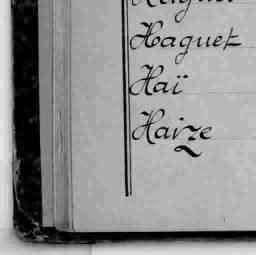 Haguet
Haï
Haize